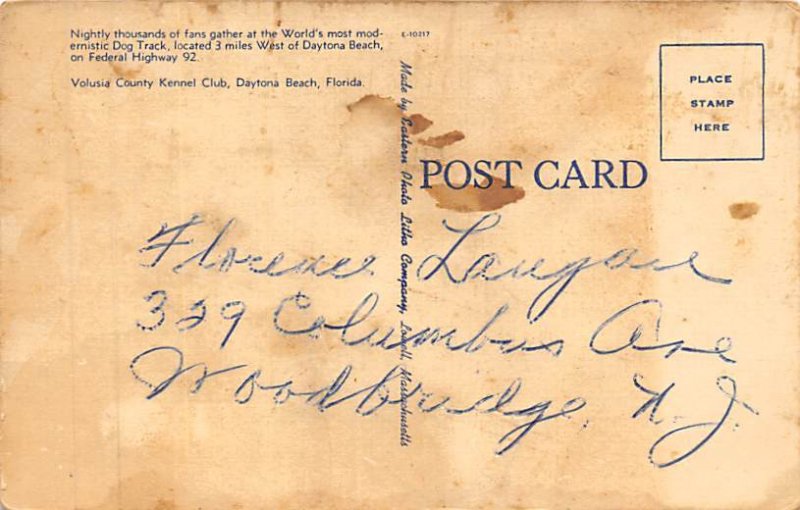 Nightly thousands of fans gather at the World's most mod-
ernistic Dog Track, located 3 miles West of Daytona Beach,
on Federal Highway 92.
Volusia County Kennel Club, Daytona Beach, Florida.
E-10217
Made by Eastern Photo Litho Company, Lowell, Massachusetts
PLACE
STAMP
HERE
POST CARD
Florence
329 Columbus Ave
Woodbridge, N.J.